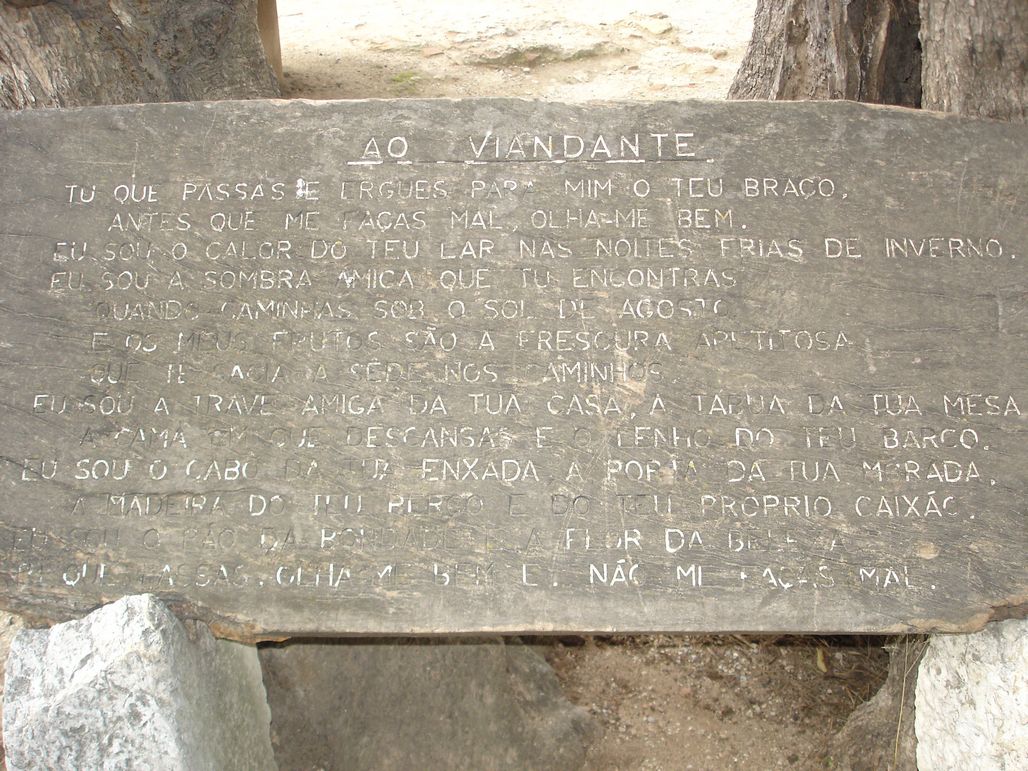 AO VIANDANTE
TU QUE PASSAS E ERGUES PARA MIM O TEU BRAÇO,
ANTES QUE ME FAÇAS MAL, OLHA-ME BEM.
EU SOU O CALOR DO TEU LAR NAS NOITES FRIAS DE INVERNO.
EU SOU A SOMBRA AMIGA QUE TU ENCONTRAS
QUANDO CAMINHAS SOB O SOL DE AGOSTO
E OS MEUS FRUTOS SÃO A FRESCURA APETITOSA
QUE TE SACIA A SEDE NOS CAMINHOS.
EU SOU A TRAVE AMIGA DA TUA CASA, A TÁBUA DA TUA MESA
A CAMA EM QUE DESCANSAS E O LENHO DO TEU BARCO.
EU SOU O CABO DA TUA ENXADA, A PORTA DA TUA MORADA,
A MADEIRA DO TEU BERÇO E DO TEU PRÓPRIO CAIXÃO.
EU SOU O PÃO DA BONDADE E A FLOR DA BELEZA
QUE PASSAS, OLHA-ME BEM E. NÃO ME FAÇAS MAL.